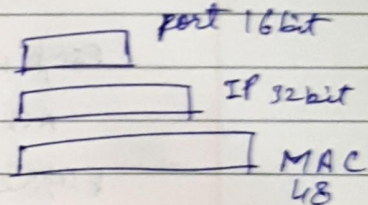 port 16bit
IP 32bit
MAC
48